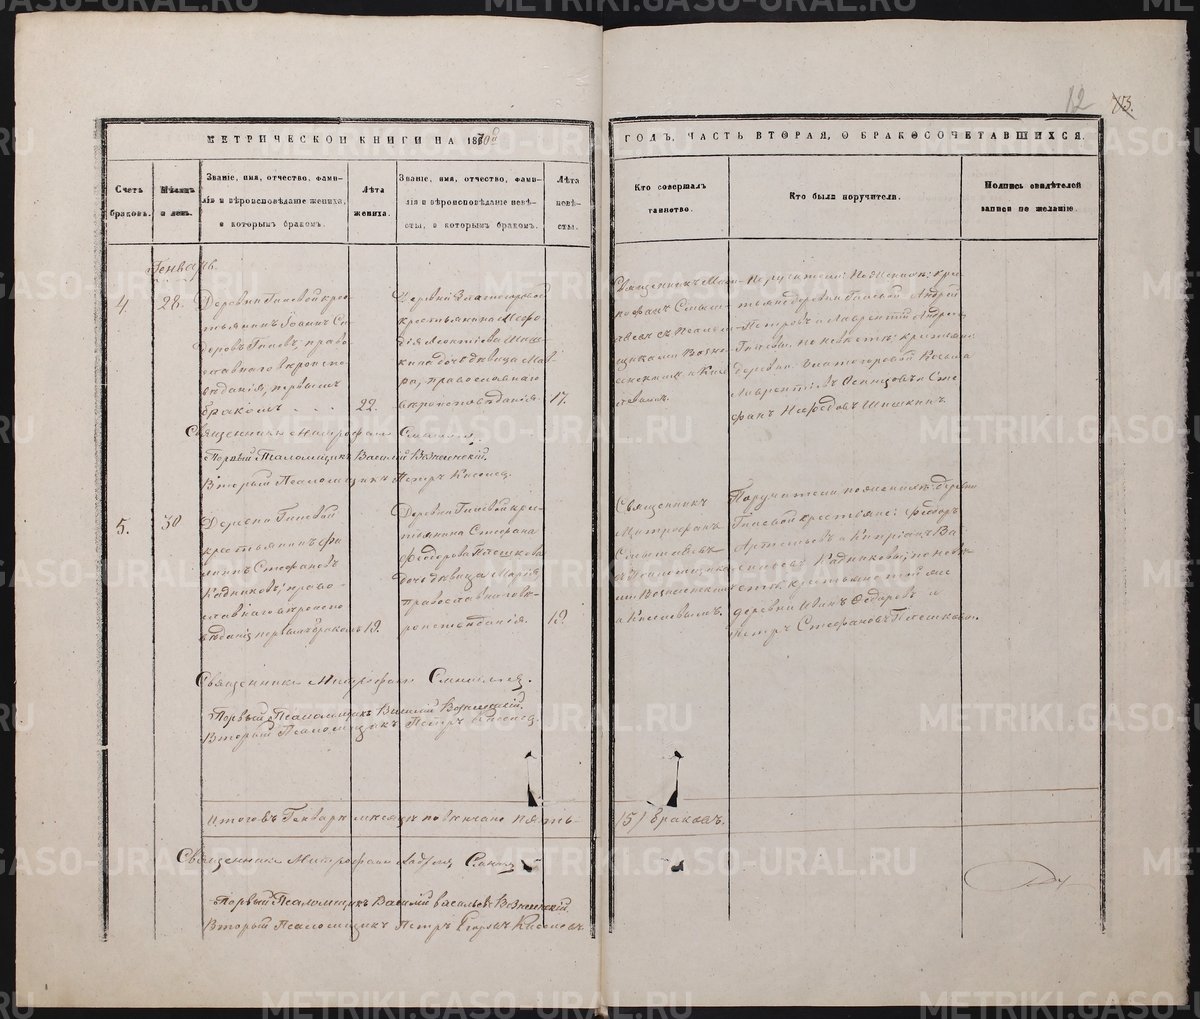 12 13.
МЕТРИЧЕСКОЙ КНИГИ НА 1870й
ГОДЪ, ЧАСТЬ ВТОРАЯ, О БРАКОСОЧЕТАВШИХСЯ.
Счетъ
браковъ.
Мѣсяцъ
и день.
Званіе, имя, отчество, фами-
лія и вѣроисповѣданіе жениха,
и которымъ бракомъ.
Лѣта
жениха.
Званіе, имя, отчество, фами-
лія и вѣроисповѣданіе невѣ-
сты, и которымъ бракомъ.
Лѣта
невѣ-
сты.
Кто совершалъ
таинство.
Кто были поручители.
Подпись свидѣтелей
записи по желанію.
Генварь.
4.
28.
Деревни Гилевой крес-
тьянинъ Іоаннъ Си-
доровъ Гилевъ, право-
славнаго вѣроиспо-
вѣданія, первымъ
бракомъ
22.
Деревни Златогоровой
крестьянина Меѳо-
дія Леонтіева Шиш-
кина дочь дѣвица Мав-
ра, православнаго
вѣроисповѣданія.
17.
Священникъ Митро-
фанъ
съ Псалом-
щиками Возне-
сенскимъ и Кисе-
левымъ.
Поручители: по женихѣ: крес-
тьяне деревни Гилевой Андрей
Петровъ и Лаврентій Андреевъ
Гилевы, по невѣстѣ: крестьяне
деревни Златогоровой
Лаврентіевъ и Сте-
фанъ Шишкинъ.
Священникъ Митрофанъ
Первый Псаломщикъ Василій Вознесенскій.
Вторый Псаломщикъ Петръ Киселевъ.
5.
30
Деревни Гилевой
крестьянинъ Фи-
липпъ Стефановъ
Кадниковъ, право-
славнаго вѣроиспо-
вѣданія первымъ бракомъ
19.
Деревни Гилевой кре-
стьянина Стефана
Ѳеодорова Плешкова
дочь дѣвица Марія,
православнаго вѣ-
роисповѣданія.
19.
Священникъ
Митрофанъ
съ Псаломщика-
ми Вознесенскимъ
и Киселевымъ.
Поручители по женихѣ: деревни
Гилевой крестьяне: Ѳедоръ
и Кипріанъ Ва-
сильевъ Кадниковы; по невѣ-
стѣ, крестьяне той же
деревни Иванъ Ѳедоровъ и
Петръ Стефановъ Плешковы.
Священникъ Митрофанъ
Первый Псаломщикъ Василій Вознесенскій.
Вторый Псаломщикъ Петръ Киселевъ.
Итого въ Генварѣ мѣсяцѣ повѣнчано пять
(5) браковъ.
Священникъ Митрофанъ
Первый Псаломщикъ Василій Васильевъ Вознесенскій.
Вторый Псаломщикъ Петръ Киселевъ.
METRIKI.GASO-URAL.RU